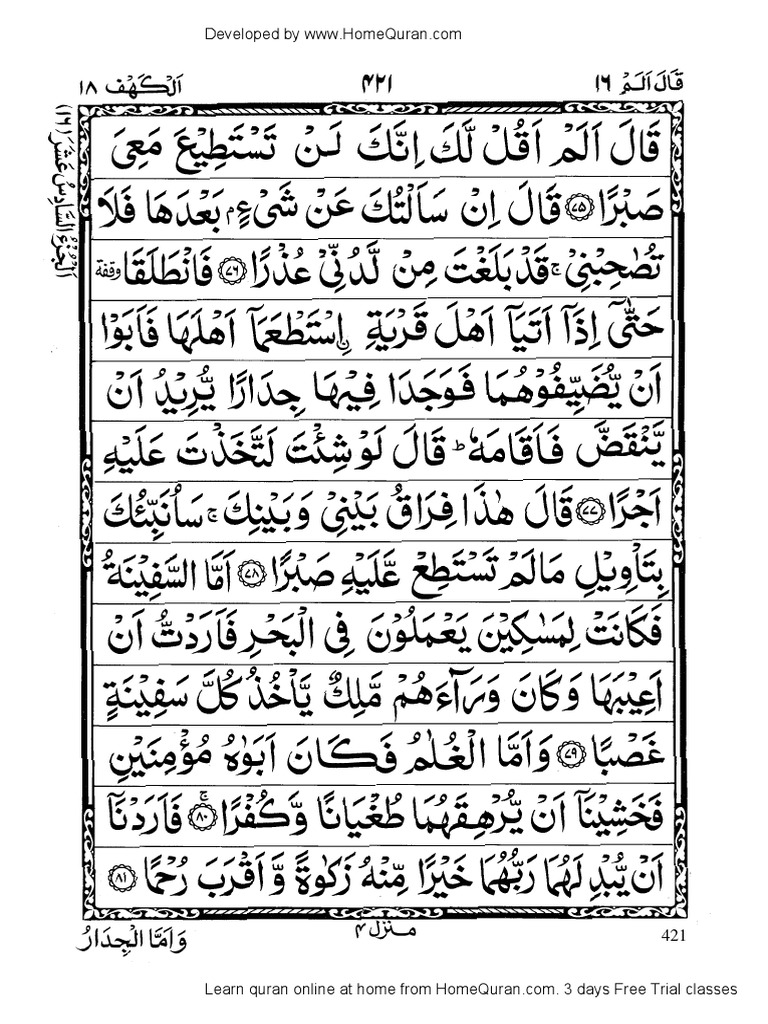 Developed by www.HomeQuran.com
قَالَ اَلَمْ ١٦ ۴۲۱ اَلْكَهْف ١٨
اَلْجُزْءُ السَّادِسُ عَشَرَ (١٦)
قَالَ اَلَمْ اَقُلْ لَّكَ اِنَّكَ لَنْ تَسْتَطِيْعَ مَعِىَ
صَبْرًا ﴿۷۵﴾ قَالَ اِنْ سَاَلْتُكَ عَنْ شَىْءٍۭ بَعْدَهَا فَلَا
تُصٰحِبْنِىْ ۚ قَدْ بَلَغْتَ مِنْ لَّدُنِّىْ عُذْرًا ﴿۷۶﴾ فَانْطَلَقَا وقفة
حَتّٰٓى اِذَآ اَتَيَآ اَهْلَ قَرْيَةِ ۨاسْتَطْعَمَآ اَهْلَهَا فَاَبَوْا
اَنْ يُّضَيِّفُوْهُمَا فَوَجَدَا فِيْهَا جِدَارًا يُّرِيْدُ اَنْ
يَّنْقَضَّ فَاَقَامَهٗ ؕ قَالَ لَوْ شِئْتَ لَتَّخَذْتَ عَلَيْهِ
اَجْرًا ﴿۷۷﴾ قَالَ هٰذَا فِرَاقُ بَيْنِىْ وَبَيْنِكَ ۚ سَاُنَبِّئُكَ
بِتَاْوِيْلِ مَا لَمْ تَسْتَطِعْ عَّلَيْهِ صَبْرًا ﴿۷۸﴾ اَمَّا السَّفِيْنَةُ
فَكَانَتْ لِمَسٰكِيْنَ يَعْمَلُوْنَ فِى الْبَحْرِ فَاَرَدْتُّ اَنْ
اَعِيْبَهَا وَكَانَ وَرَآءَهُمْ مَّلِكٌ يَّاْخُذُ كُلَّ سَفِيْنَةٍ
غَصْبًا ﴿۷۹﴾ وَاَمَّا الْغُلٰمُ فَكَانَ اَبَوٰهُ مُؤْمِنَيْنِ
فَخَشِيْنَآ اَنْ يُّرْهِقَهُمَا طُغْيَانًا وَّكُفْرًا ۚ ﴿۸۰﴾ فَاَرَدْنَآ
اَنْ يُّبْدِلَهُمَا رَبُّهُمَا خَيْرًا مِّنْهُ زَكٰوةً وَّاَقْرَبَ رُحْمًا ﴿۸۱﴾
منزل ۴
وَاَمَّا الْجِدَارُ
421
Learn quran online at home from HomeQuran.com. 3 days Free Trial classes